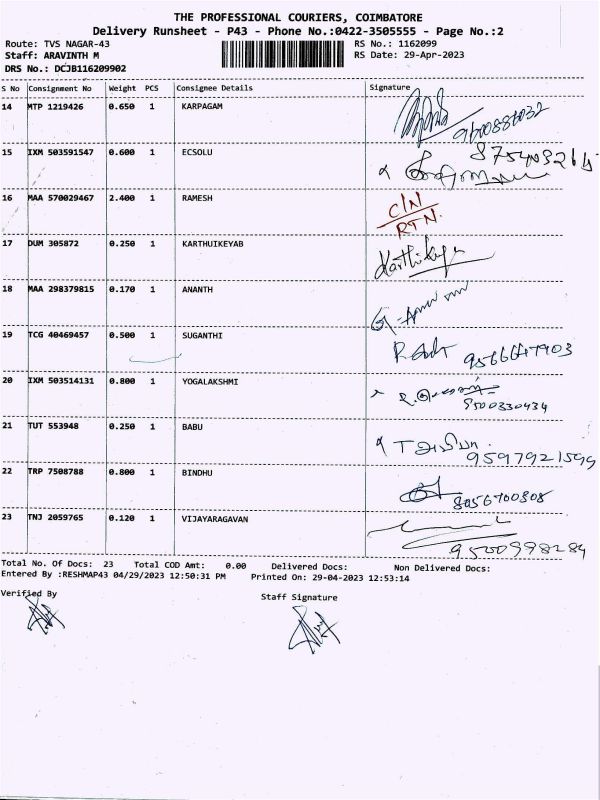 THE PROFESSIONAL COURIERS, COIMBATORE
Delivery Runsheet - P43 - Phone No.:0422-3505555 - Page No.:2
Route: TVS NAGAR-43 RS No.: 1162099
Staff: ARAVINTH M RS Date: 29-Apr-2023
DRS No.: DCJB116209902
S No Consignment No Weight PCS Consignee Details Signature
14 MTP 1219426 0.650 1 KARPAGAM
15 IXM 503591547 0.600 1 ECSOLU
16 MAA 570029467 2.400 1 RAMESH C/N
RTN.
17 DUM 305872 0.250 1 KARTHUIKEYAB Karthikeya
18 MAA 298379815 0.170 1 ANANTH
19 TCG 40469457 0.500 1 SUGANTHI
20 IXM 503514131 0.800 1 YOGALAKSHMI
9500330434
21 TUT 553948 0.250 1 BABU
9597921599
22 TRP 7508788 0.800 1 BINDHU
8056700808
23 TNJ 2059765 0.120 1 VIJAYARAGAVAN
9500998284
Total No. Of Docs: 23 Total COD Amt: 0.00 Delivered Docs: Non Delivered Docs:
Entered By :RESHMAP43 04/29/2023 12:50:31 PM Printed On: 29-04-2023 12:53:14
Verified By Staff Signature